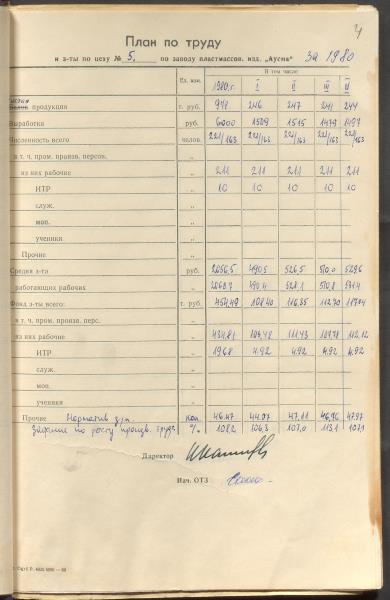 4
План по труду
и з-ты по цеху № 5, по заводу пластмассов. изд. „Аусма“ за 1980
Ед. изм. 1980 г. В том числе
I II III IV
продукция т. руб. 978 246 247 241 244
Выработка руб. 6000 1509 1515 1479 1497
Численность всего челов. 221/163 221/163 221/163 221/163 221/163
в т. ч. пром. произв. персон. „
из них рабочие „ 211 211 211 211 211
ИТР „ 10 10 10 10 10
служ. „
моп. „
ученики „
Прочие „
Средняя з-та руб. 2056,5 490,5 526,5 510,0 529,6
работающих рабочих „ 490,4 528,1 510,8
Фонд з-ты всего: т. руб. 454,49 108,40 116,35 112,70
в т. ч. пром. произв. перс. „
из них рабочие „ 434,81 103,48 111,43 107,78 112,12
ИТР „ 19,68 4.92 4.92 4.92 4.92
служ. „
моп. „
ученики „
Прочие Норматив з/п. коп. 46.47 44.07 47.11 46,76 47.97
задание по росту произв. труда % 108,2 106,3 107,0 113,1 107,1
Директор
Нач. ОТЗ